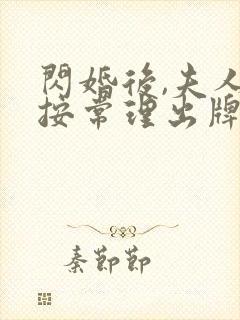 閃婚後,夫人
按常理出牌
秦節節